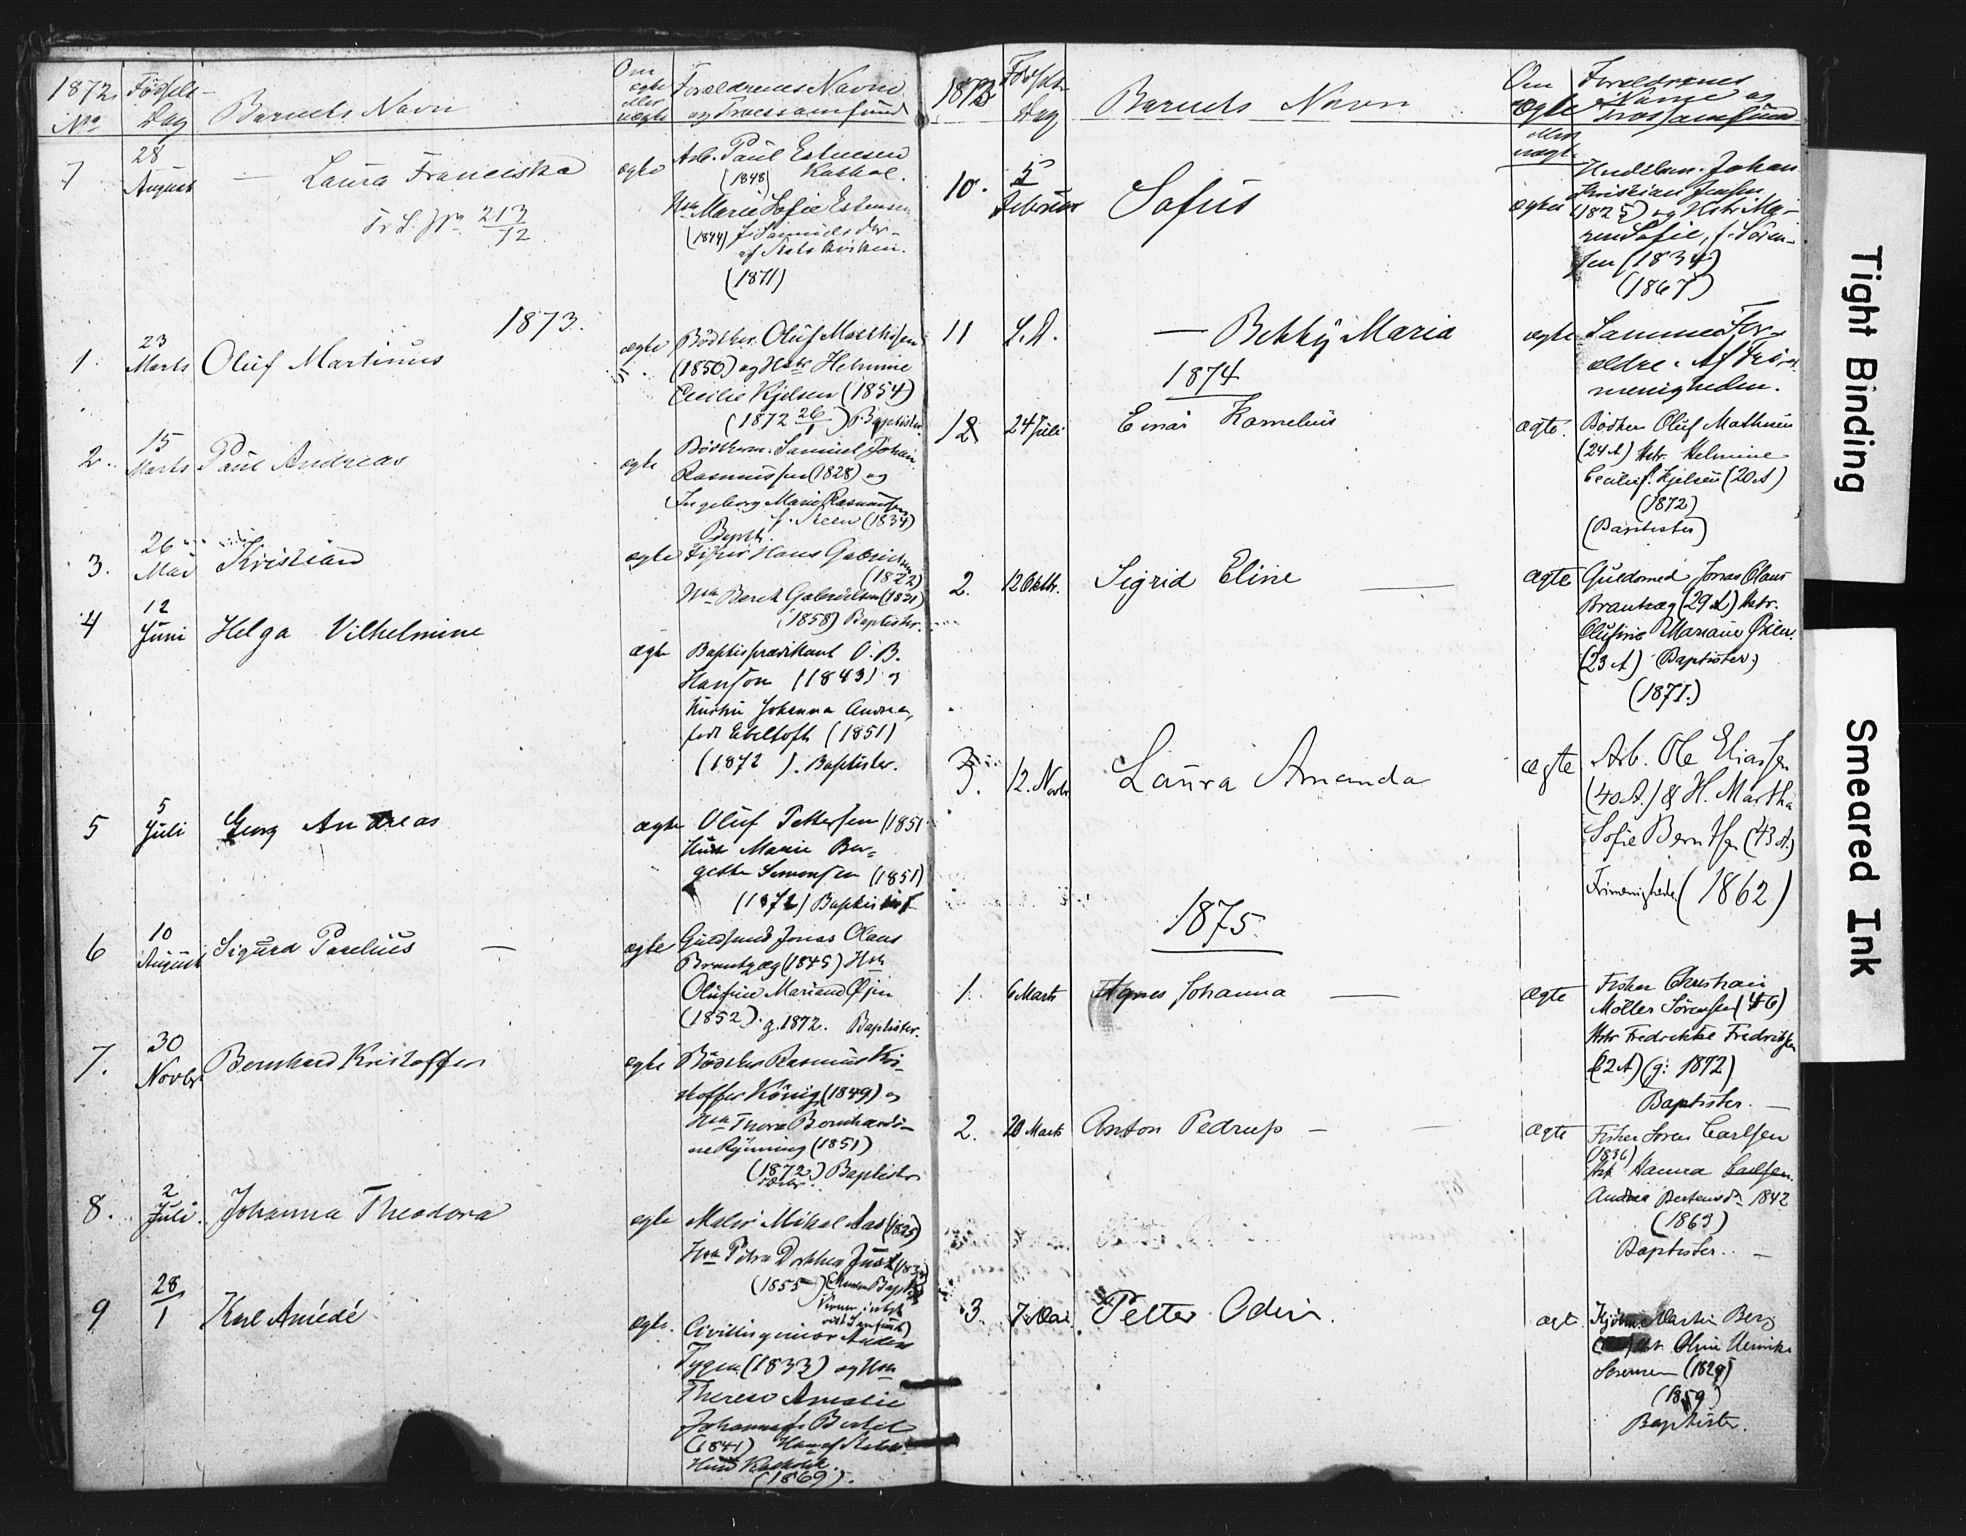 1872 Fødsels-
No Dag Barnets Navn
Om ægte eller uægte
Forældrenes Navne
og Troessamfund
7 28 August — Laura Franciska ægte
Arb. Paul Estensen
(1848) Kathol.
Hst Marie Sofie Estensen
(1844) f. Samuelsdtr
af Statskirken.
(1871)
1873.
1. 23 Marts Oluf Martinus ægte
Bødker Oluf Mathisen
(1850) og Hstr Helmine
Cecilie Kjelsen (1854)
(1872 26/1) Baptister
2. 15 Marts Paul Andreas ægte
Samuel Johan
Rasmussen (1828) og
Ingeborg Marie Rasmussen
f. Steen (1834)
Bapt.
3. 26 Mai Kristian ægte
Fisker Hans Gabrielsen
(1822)
Hst Beret Gabrielsen (1831)
(1858) Baptister.
4 12 Juni Helga Vilhelmine ægte
Baptistprædikant O. B.
Hanson (1843) og
Hustru Johanna Andrea,
født Ebeltoft (1851)
(1872 ). Baptister.
5 5 Juli Georg Andreas ægte
Oluf Pettersen (1851
Hust Marie Ber-
gethe Simonsen (1851)
(1872) Baptist
6 10 August Sigurd Paulius — ægte
Guldsmed Jonas Olaus
Brantzæg (1845) Hst
Olufine Mariane Øien
(1852). g. 1872. Baptister.
7. 30 Novbr Bernhard Kristoffer ægte
Bødker Rasmus Kri-
stoffer König (1849) og
Hst Thora Bernhardi-
ne Rynning (1851)
(1872) Baptister
8. 2 Juli. Johanna Theodora ægte
Maler Mikal Aas (1825)
Hst Petra Dorthea Just
(1855)
9 28/1 Karl Amédé ægte.
Civilingeniør
Tygen (1833) og Hst
Therese Amalie
Johanne f. Bertel
(1841)
Hust Kathol.
(1869).
1873 Fødsels
Dag Barnets Navn
Om Ægte eller uægte
Forældrenes
Navne og
Trossamfund
10. 5 Februar Sofus ægte
Handelsm. Johan
Kristian Jensen
(1825) og Hstr Ma-
ren Sofie, f. Sören-
sen (1834)
(1867)
11 S. D. — Bekky Maria ægte
Samme For-
ældre. Af Fri-
menigheden.
1874
12 24 Juli Einar Kornelius ægte.
Bødker Oluf Mathisen
(24 A) Hstr. Helmine
Cecilie f. Kjelsen (20 A)
(1872)
(Baptister)
2. 12 Oktbr. Sigrid Eline — ægte
Guldsmed Jonas Olaus
Brantzæg (29 A) Hstr.
Olufine Mariane Øien
(23 A) Baptister)
(1871.)
3. 12. Novbr Laura Amanda ægte
Arb. Ole Eliassen
(40 A.) & H. Martha
Sofie Berntsen (43 A.)
Frimenighede. (1862)
1875.
1. 6 Marts Agnes Johanna — ægte
Fisker Christian
Möller Sörensen (46)
Hstr Fredrikke Fredriksen
(g: 1872)
Baptister. —
2. 20 Marts Anton Pedrup — — ægte
Fisker Soren Carlsen
(1836)
Hst Hanna Carlsen
Andrea 1842
(1863)
Baptister. —
3. 7. Mai. Petter Odin. ægt.
Martin Berg
Hst. Oline Henrikke
Sorensen (1829)
(1859)
Baptister.
Tight Binding
Smeared Ink